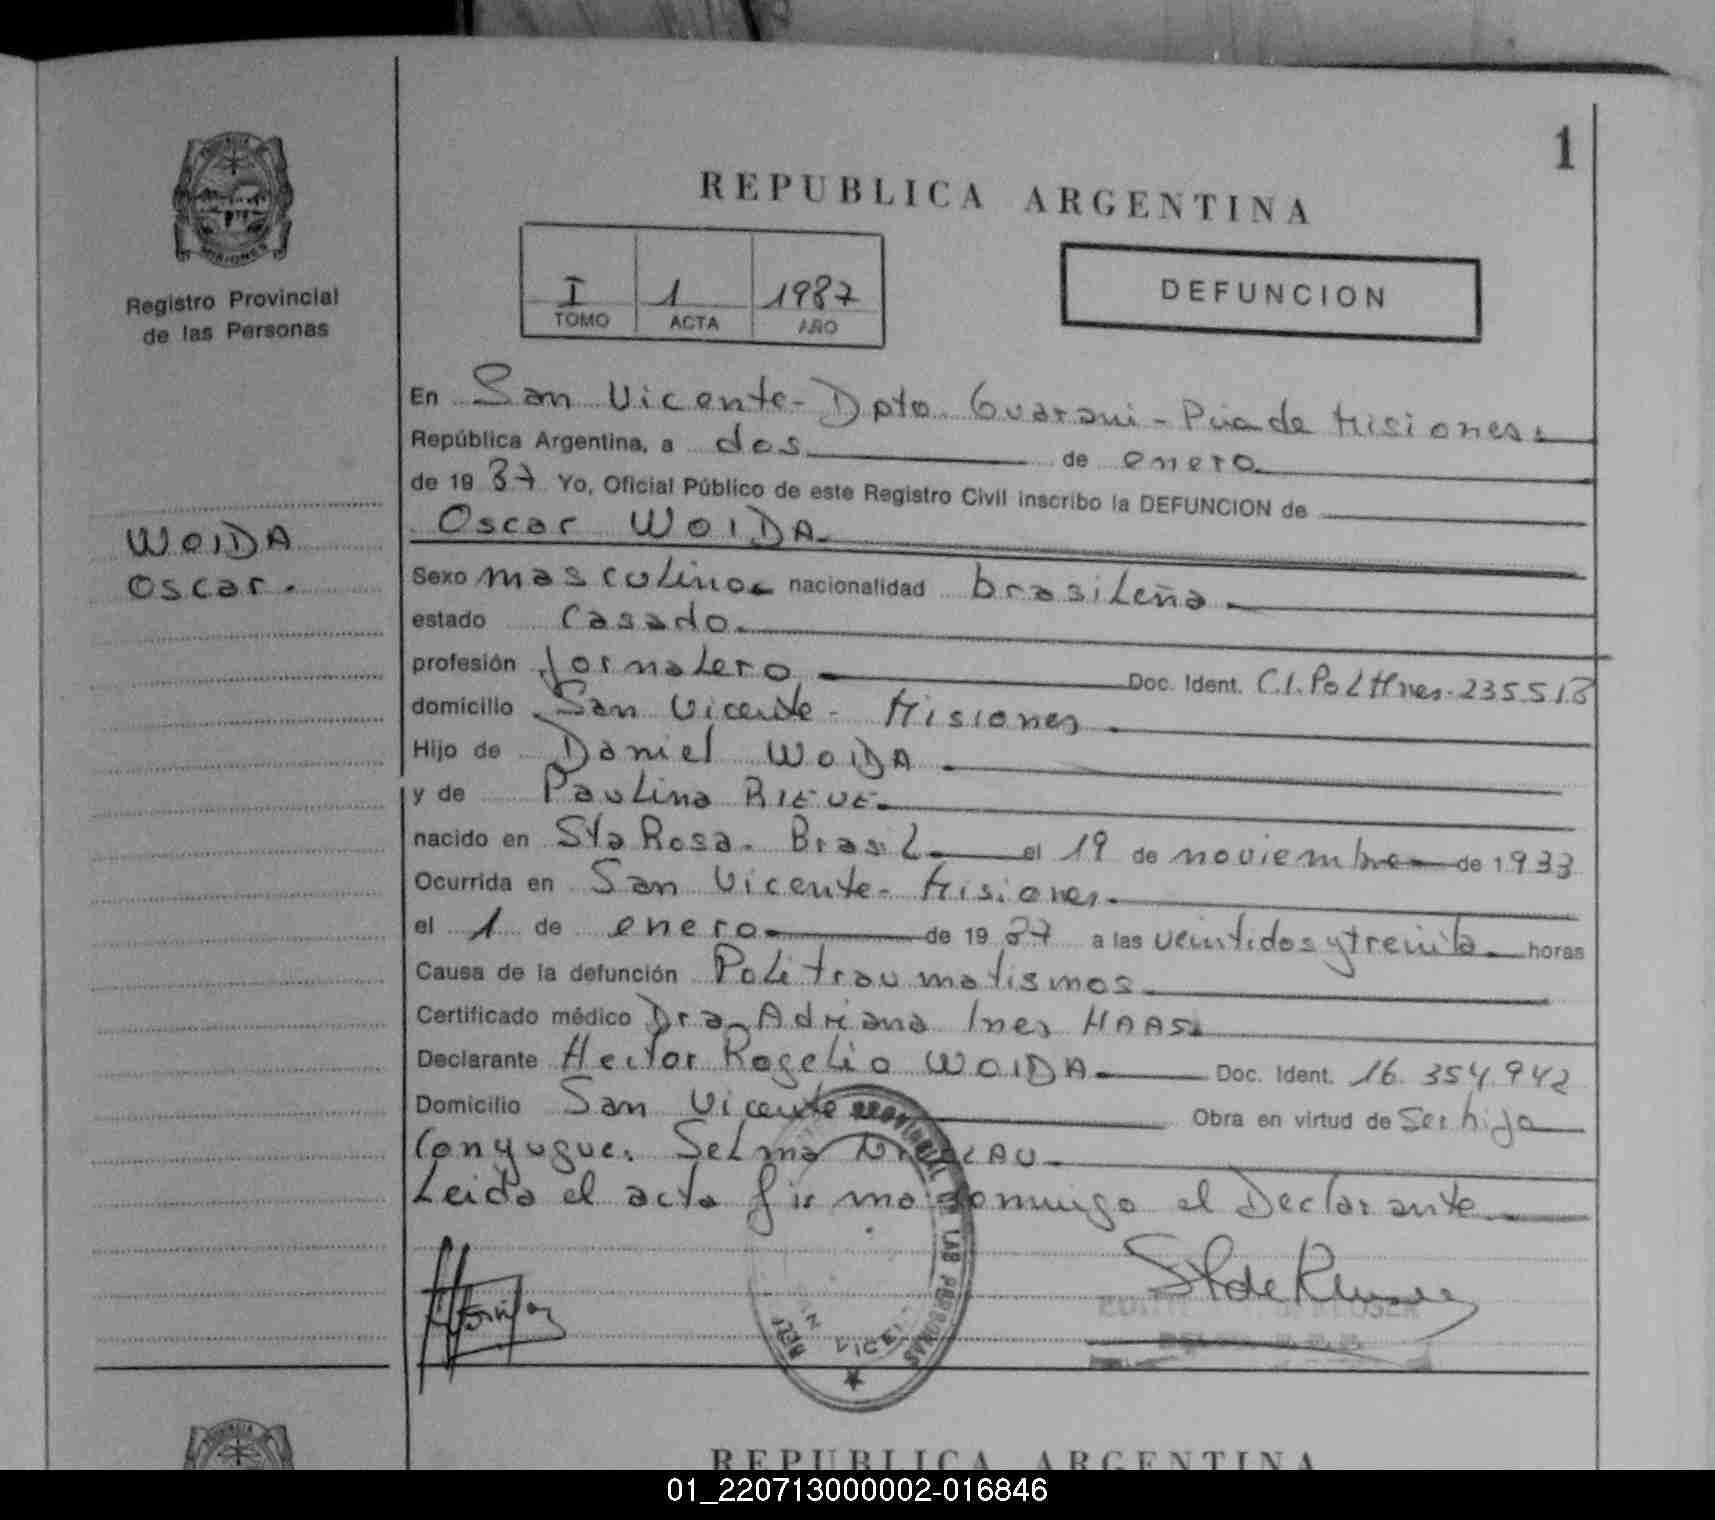 1
REPUBLICA ARGENTINA
I 1 1987
TOMO ACTA AÑO
DEFUNCION
Registro Provincial
de las Personas
WOIDA
Oscar.
En San Vicente - Dpto. Guarani - Pcia de Misiones.
República Argentina, a dos de enero
de 1987 Yo, Oficial Público de este Registro Civil inscribo la DEFUNCION de
Oscar WOIDA.
Sexo masculino nacionalidad brasileña
estado Casado.
profesión Jornalero Doc. Ident. C.I. Pol Mnes. 235.513
domicilio San Vicente - Misiones
Hijo de Daniel WOIDA
y de Paulina RIEVE.
nacido en Sta Rosa. Brasil el 19 de noviembre de 1933
Ocurrida en San Vicente - Misiones.
el 1 de enero de 1987 a las veintidos y treinta horas
Causa de la defunción Politraumatismos
Certificado médico Dra. Adriana Ines HAAS.
Declarante Hector Rogelio WOIDA Doc. Ident. 16.354.942
Domicilio San Vicente Obra en virtud de ser hijo
Conyugue. Selma
Leida el acta firma conmigo el Declarante
PROVINCIAL DE LAS PERSONAS
REPUBLICA ARGENTINA
01_220713000002-016846